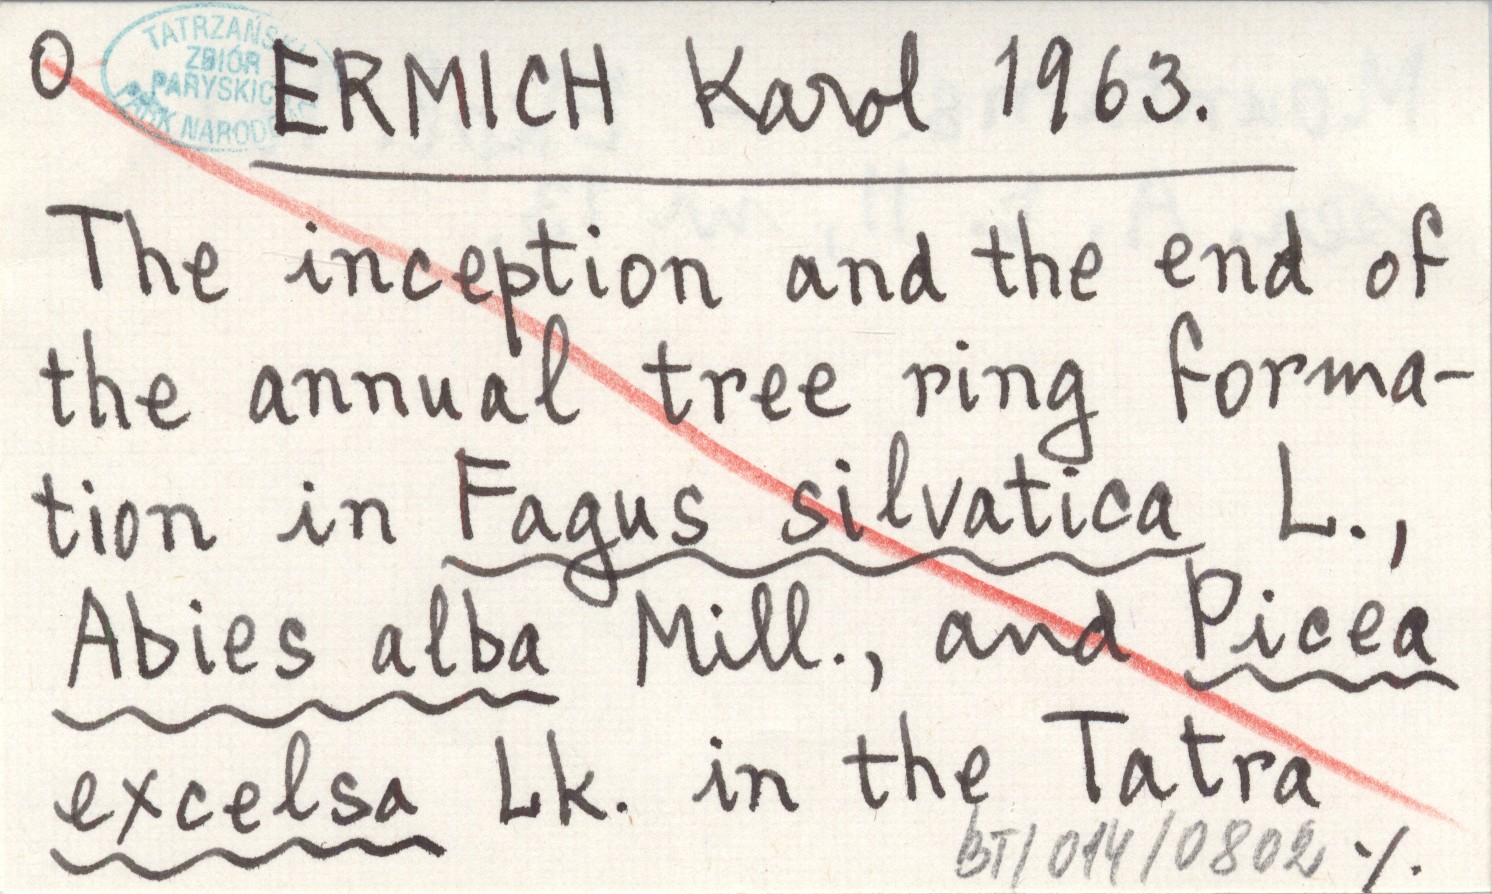 O
TATRZAŃSKI
ZBIÓR
PARYSKICH
PARK NARODOWY
ERMICH Karol 1963.
The inception and the end of
the annual tree ring forma-
tion in Fagus silvatica L.,
Abies alba Mill., and Picea
excelsa Lk. in the Tatra
BT/014/0802 ·/.